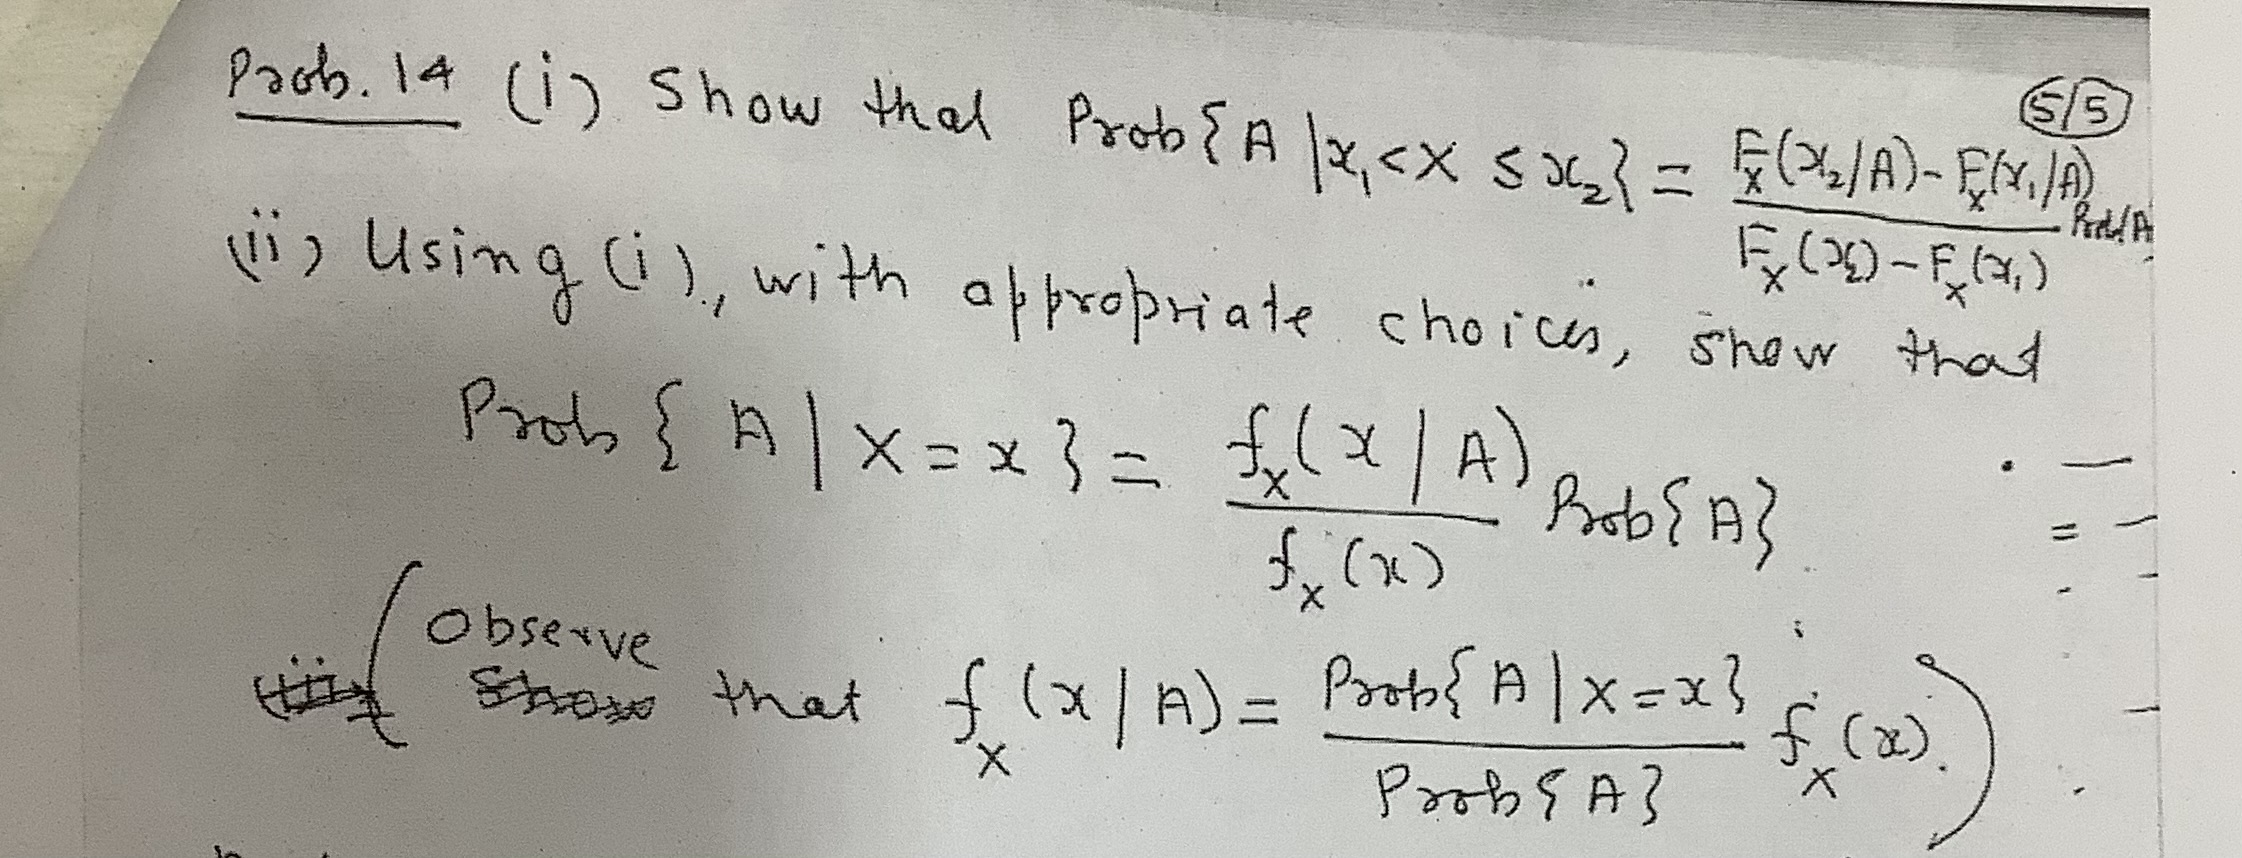 Prob. 14 (i) Show that Prob{A | x₁ < X ≤ x₂} = (F_X(x₂/A) - F_X(x₁/A)) / (F_X(x₂) - F_X(x₁)) Prob{A
5/5
(ii) Using (i), with appropriate choices, show that
Prob{A | X = x} = f_X(x | A) / f_X(x) Prob{A}
(Observe that f_X(x | A) = Prob{A | X = x} / Prob{A} f_X(x).)